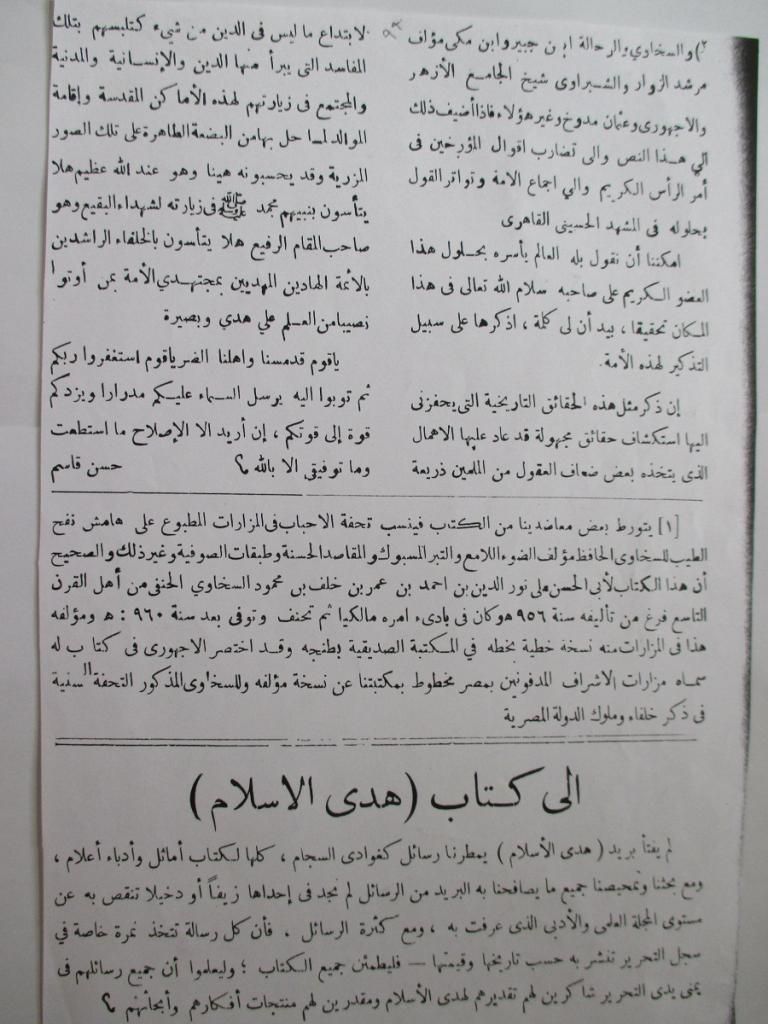 ٢) والسخاوي والرحالة ابن جبير وابن مكى مؤلف
مرشد الزوار والشبراوى شيخ الجامع الأزهر
والاجهورى وعثمان مدوخ وغير هؤلاء فاذا أضيف ذلك
الي هذا النص والى تضارب اقوال المؤرخين فى
أمر الرأس الكريم والي اجماع الامة وتواتر القول
بحلوله فى المشهد الحسينى القاهرى
امكننا أن نقول بله العالم بأسره بحلول هذا
العضو الكريم على صاحبه سلام الله تعالى فى هذا
المكان تحقيقا ، بيد أن لى كلمة ، اذكرها على سبيل
التذكير لهذه الأمة .
إن ذكر مثل هذه الحقائق التاريخية التى يحفزنى
اليها استكشاف حقائق مجهولة قد عاد عليها الاهمال
الذى يتخذه بعض ضعاف العقول من الملمين ذريعة
لابتداع ما ليس فى الدين من شيء كتلبسهم بتلك
المفاسد التى يبرأ منها الدين والإنسانية والمدنية
والمجتمع فى زيارتهم لهذه الأماكن المقدسة وإقامة
الموالد لما حل بها من البضعة الطاهرة على تلك الصور
المزرية وقد يحسبونه هينا وهو عند الله عظيم هلا
يتأسون بنبيهم محمد ﷺ فى زيارته لشهداء البقيع وهو
صاحب المقام الرفيع هلا يتأسون بالخلفاء الراشدين
بالأئمة الهادين المهديين بمجتهدي الأمة بمن أوتوا
نصيبا من العلم علي هدي وبصيرة
ياقوم قدمسنا واهلنا الضر ياقوم استغفروا ربكم
ثم توبوا اليه يرسل السماء عليكم مدرارا ويزدكم
قوة إلى قوتكم ، إن أريد الا الإصلاح ما استطعت
وما توفيقي الا بالله ؟ حسن قاسم
[١] يتورط بعض معاضدينا من الكتب فينسب تحفة الاحباب فى المزارات المطبوع على هامش نفح
الطيب للسخاوى الحافظ مؤلف الضوء اللامع والتبر المسبوك والمقاصد الحسنة وطبقات الصوفية وغير ذلك والصحيح
أن هذا الكتاب لأبي الحسن على نور الدين بن احمد بن عمر بن خلف بن محمود السخاوي الحنفى من أهل القرن
التاسع فرغ من تأليفه سنة ٩٥٦ هـ وكان فى بادىء امره مالكيا ثم تحنف وتوفى بعد سنة ٩٦٠ : ه ومؤلفه
هذا فى المزارات منه نسخة خطية بخطه في المكتبة الصديقية بطنجه وقد اختصر الاجهورى فى كتاب له
سماه مزارات الاشراف المدفونين بمصر مخطوط بمكتبتنا عن نسخة مؤلفه وللسخاوى المذكور التحفة السنية
فى ذكر خلفاء وملوك الدولة المصرية
الى كتاب (هدى الاسلام)
لم يفتأ بريد ( هدى الأسلام ) يمطرنا رسائل كغوادى السجام ، كلها لكتاب أماثل وأدباء أعلام ،
ومع بحثنا وتمحيصنا جميع ما يصافحنا به البريد من الرسائل لم نجد فى إحداها زيفاً أو دخيلا تنقص به عن
مستوى المجلة العلمى والأدبى الذى عرفت به ، ومع كثرة الرسائل . فأن كل رسالة تتخذ نمرة خاصة في
سجل التحرير تنشر به حسب تاريخها وقيمتها — فليطمئن جميع الكتاب ؛ وليعلموا أن جميع رسائلهم فى
يمنى يدى التحرير شاكرين لهم تقديرهم لهدى الأسلام ومقدرين لهم منتجات أفكارهم وأبحاثهم ؟